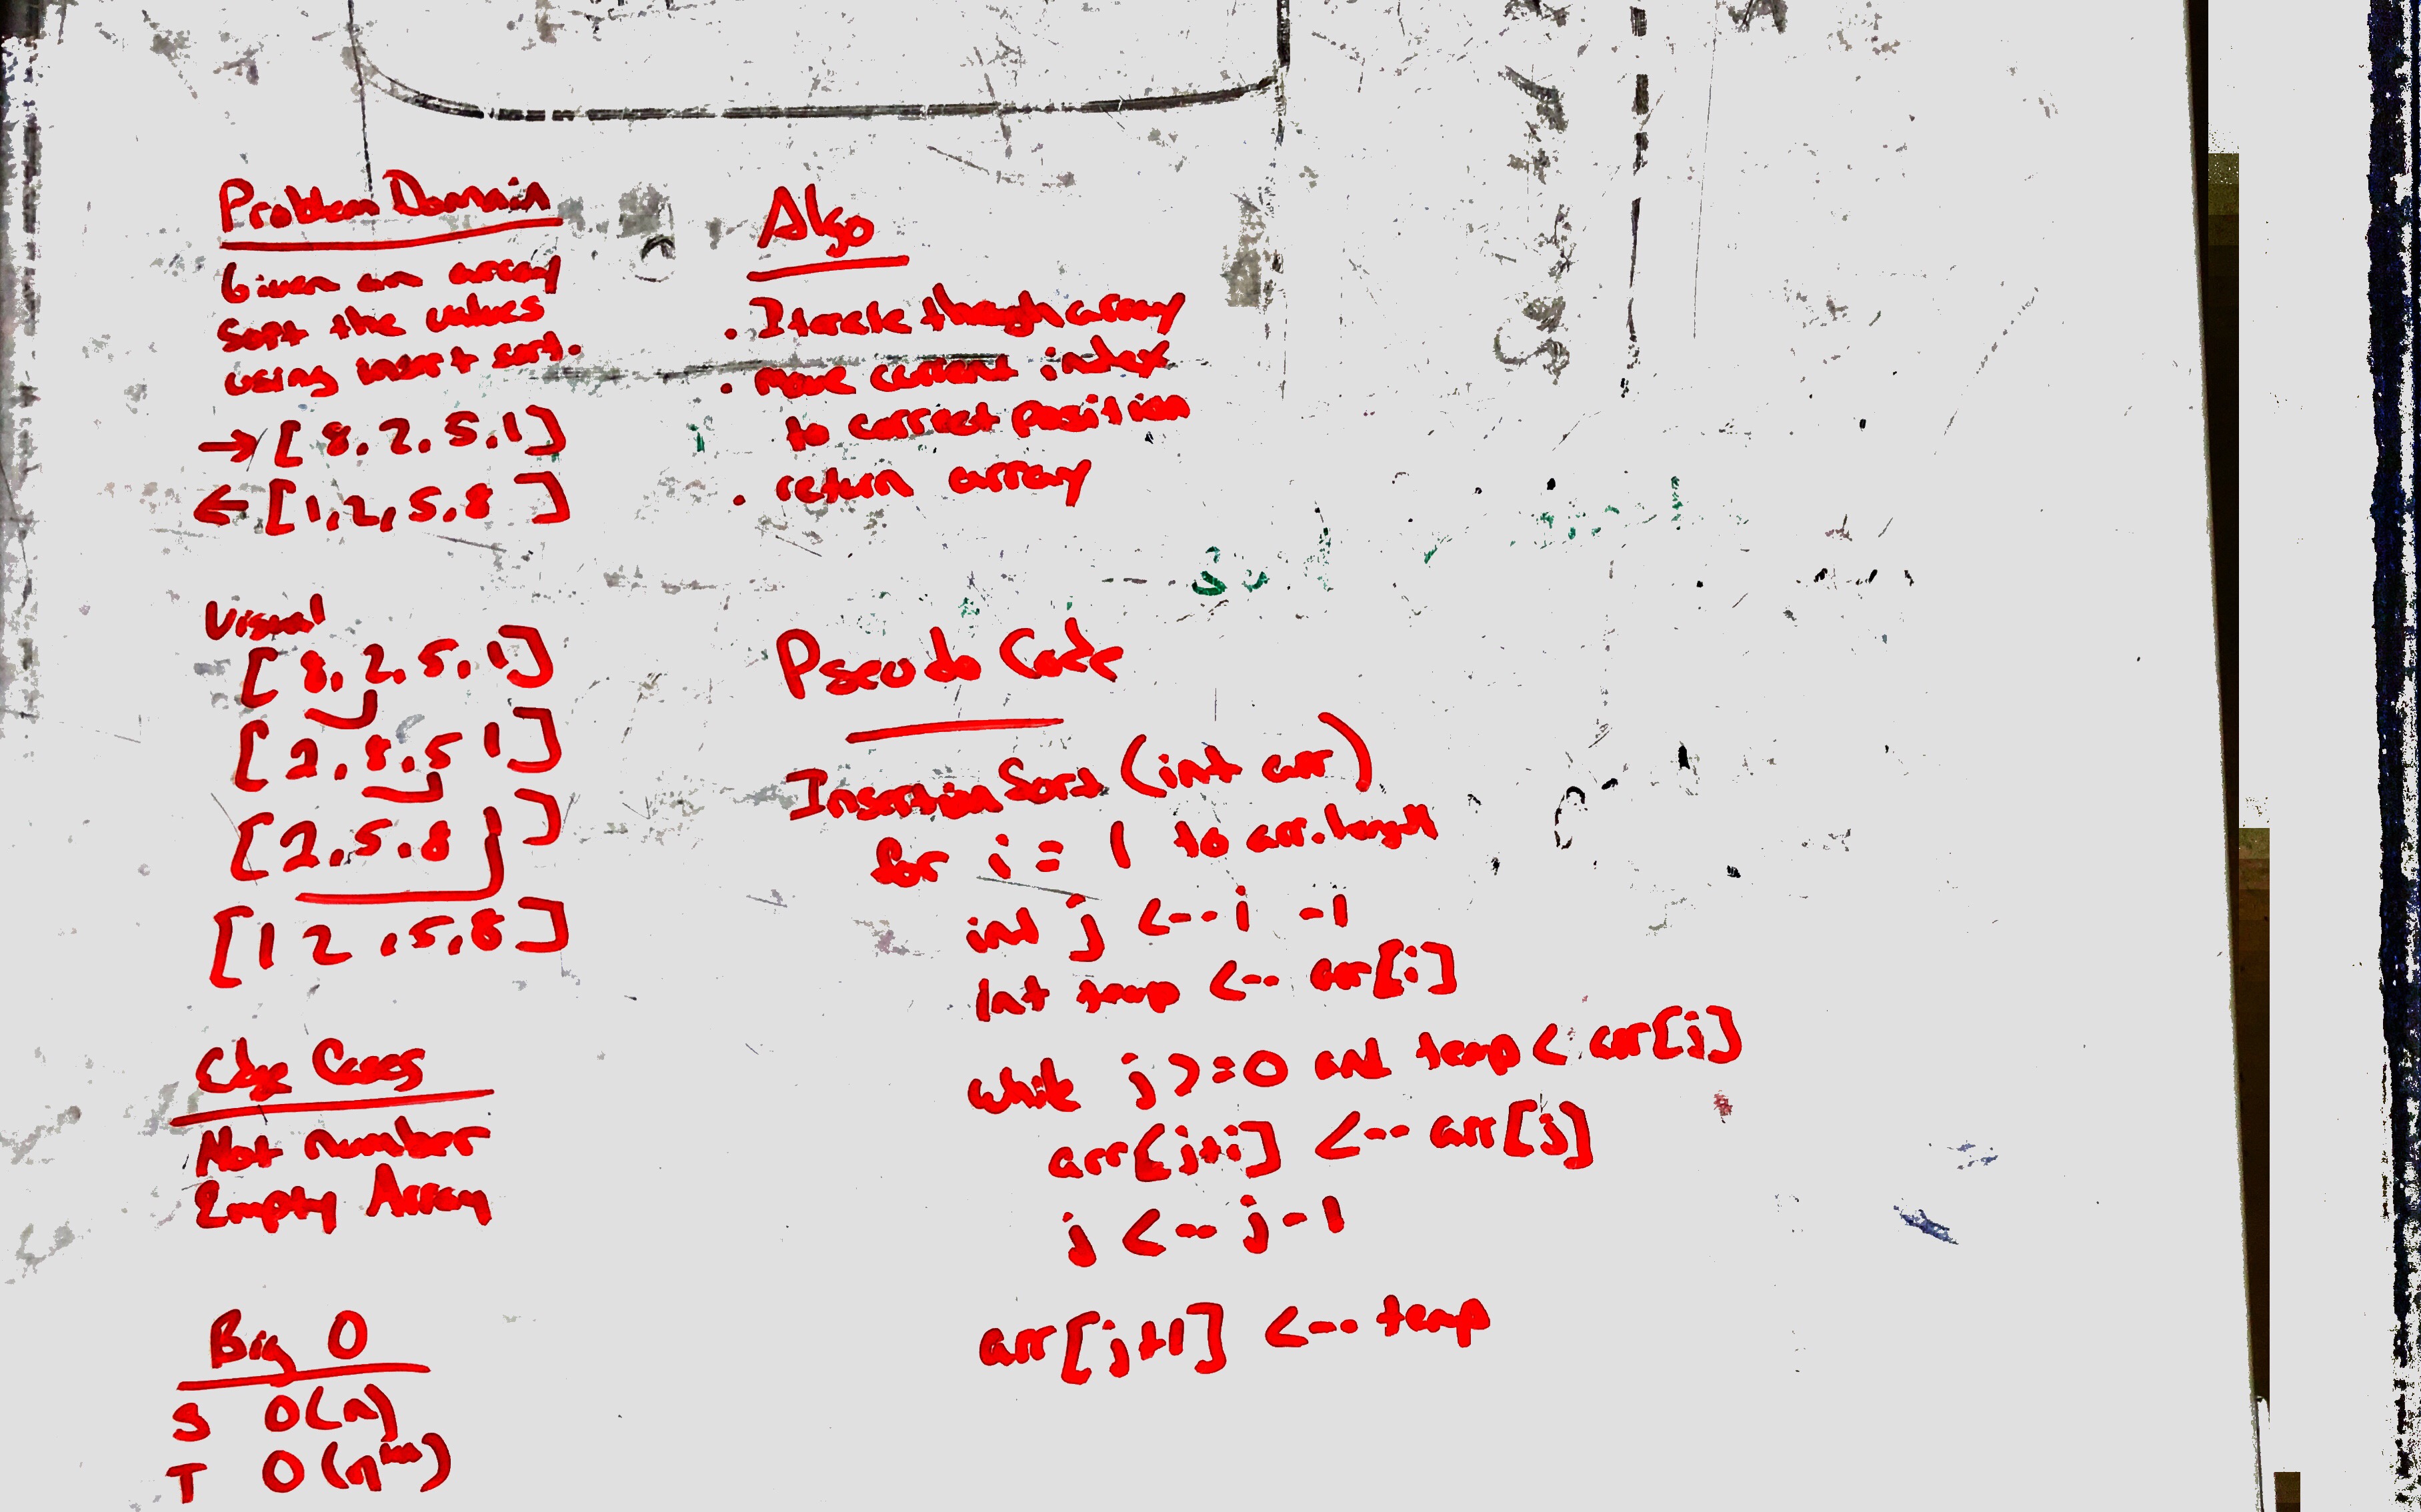 Problem Domain
Given an array
Sort the values
using insert sort.
→ [8, 2, 5, 1]
← [1, 2, 5, 8 ]
Visual
[8, 2, 5, 1]
[2, 8, 5 1]
[2, 5, 8 1]
[1 2, 5, 8]
Edge Cases
Not number
Empty Array
Big O
S O(n)
T O(n
Algo
. Iterate through array
. move current index
to correct position
. return array
Pseudo Code
Insertion Sort (int arr)
for i = 1 to arr.length
int j <-- i -1
int temp <-- arr[i]
while j >=0 and temp < arr[j]
arr[j+i] <-- arr[j]
j <-- j-1
arr[j+1] <-- temp